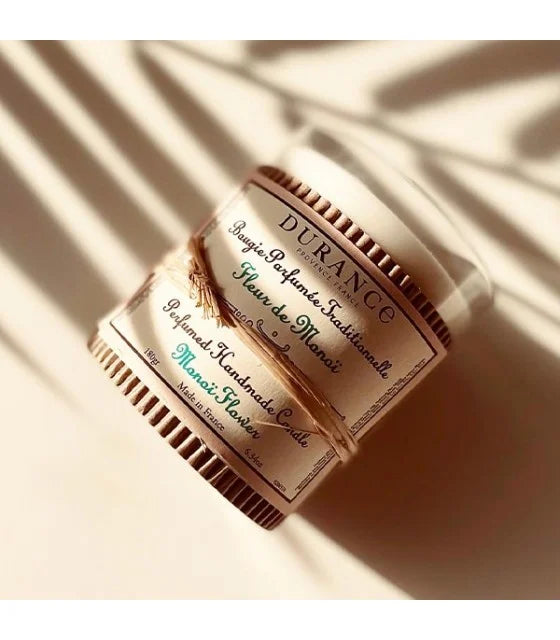 DURANCE
PROVENCE FRANCE
Bougie Parfumée Traditionnelle
Fleur de Monoï
Perfumed Handmade Candle
Monoï Flower
180gr
Made in France
6.34oz